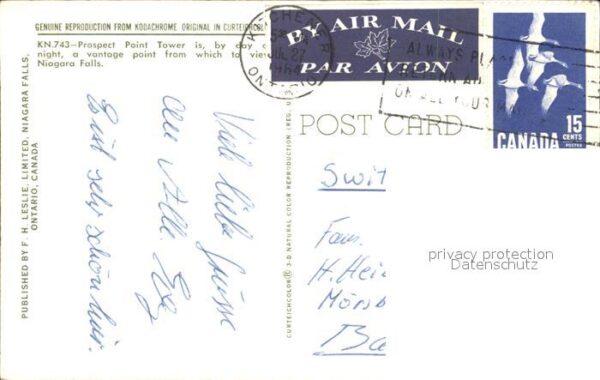 GENUINE REPRODUCTION FROM KODACHROME ORIGINAL IN CURTEICHCOL
KN.743—Prospect Point Tower is, by day o
night, a vantage point from which to view
Niagara Falls.
KITCHENER
JUL 27
ONTARIO
BY AIR MAIL
PAR AVION
ALWAYS PLACE
RETURN AD
ON ALL YOUR M
15
CENTS
CANADA
POSTES
POST CARD
PUBLISHED BY F. H. LESLIE, LIMITED, NIAGARA FALLS,
ONTARIO, CANADA
CURTEICHCOLOR® 3-D NATURAL COLOR REPRODUCTION (REG. U
Viele liebe Grüsse
an Alle. Elly
Es ist sehr schön hier.
Swit
Fam.
H. Hei
Mörsb
Ba
privacy protection
Datenschutz